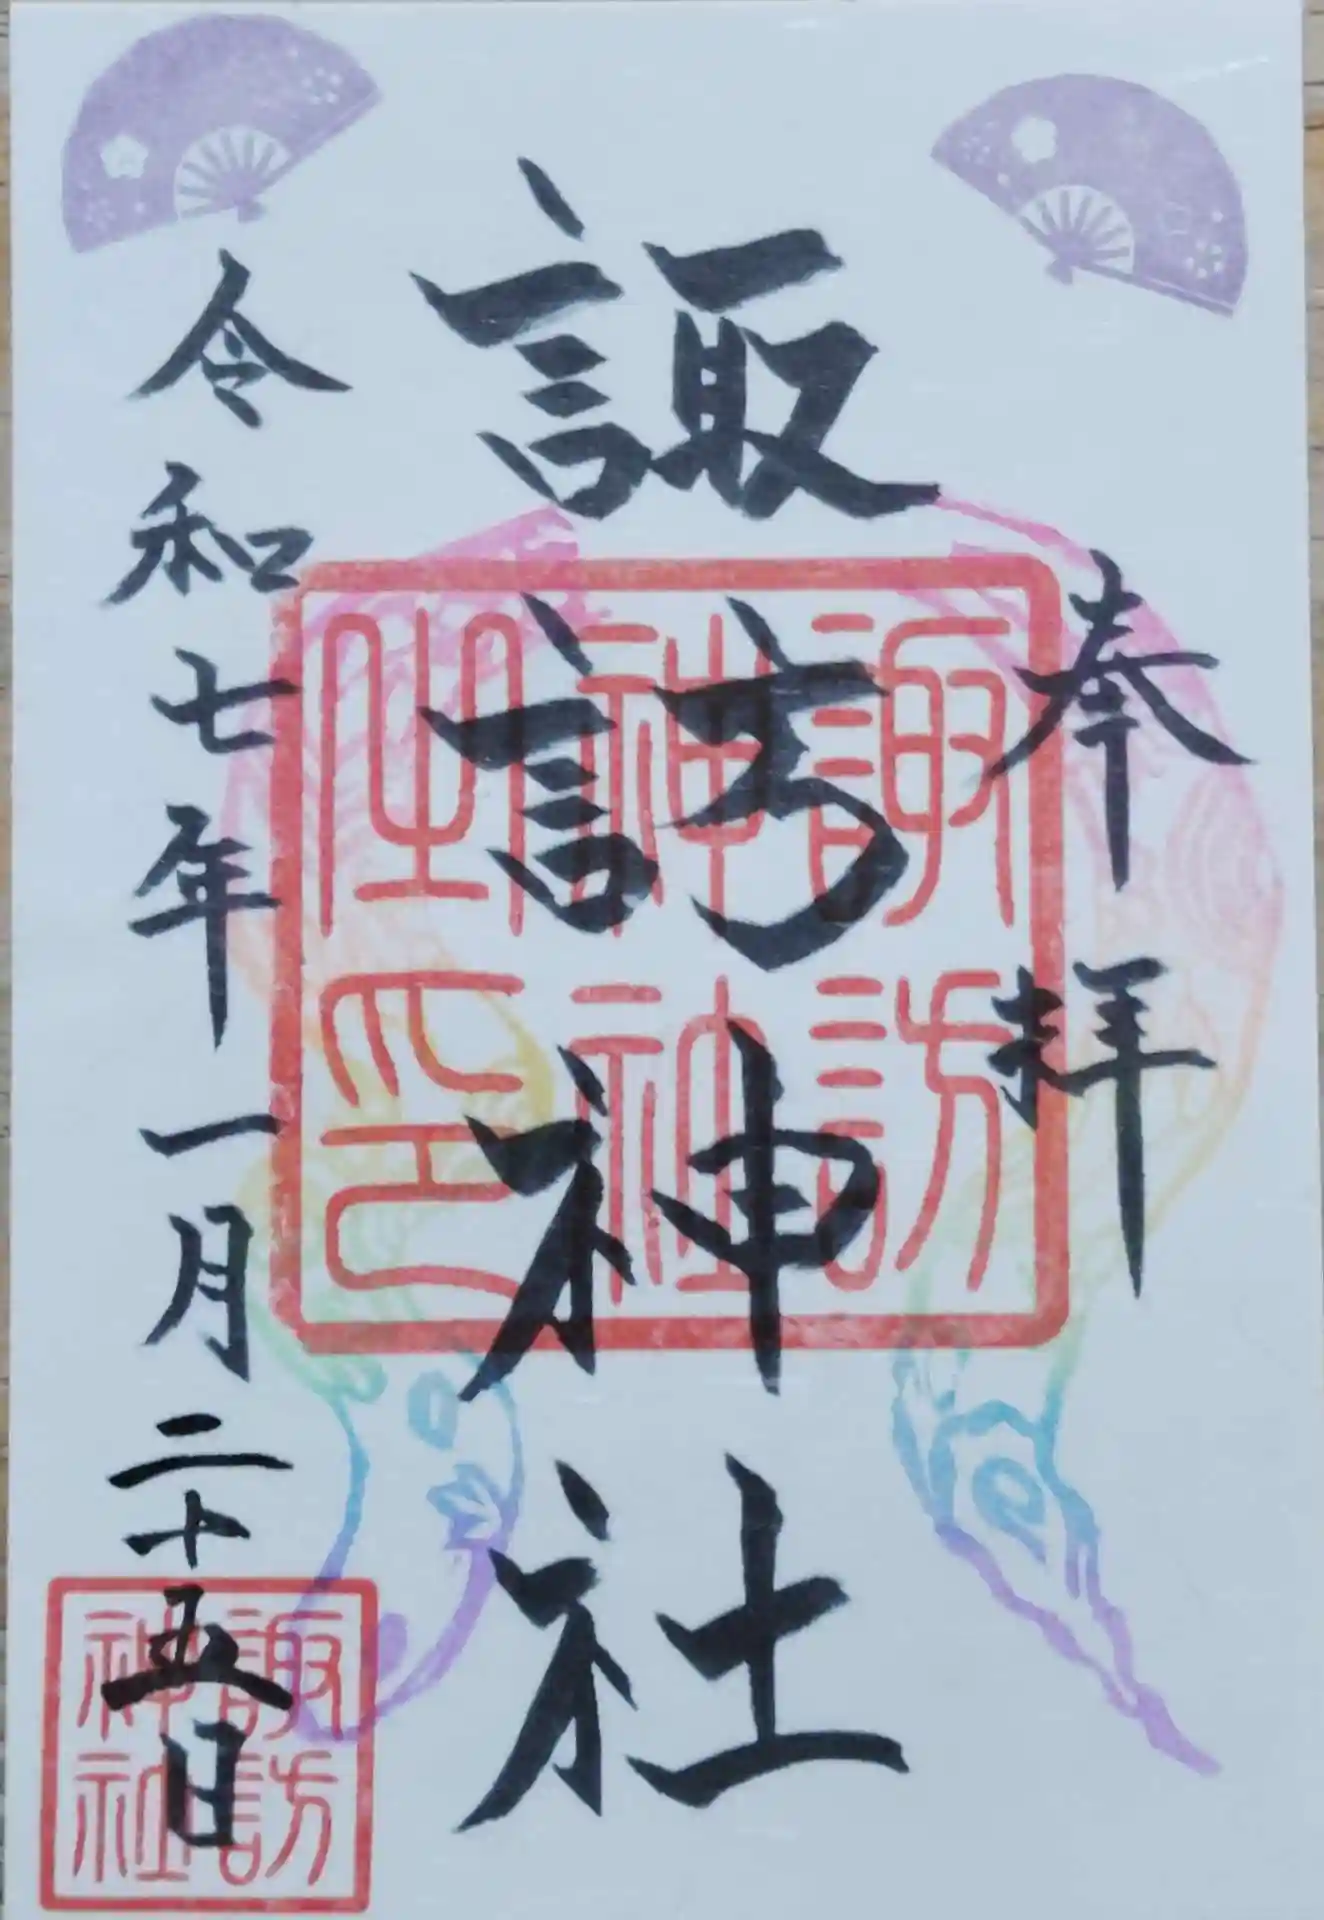 奉拝
諏訪神社
令和七年一月二十五日
諏訪
神社
諏訪
神社